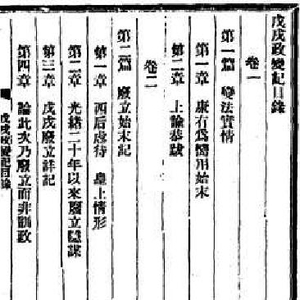 戊戌政變記目錄
卷一
第一篇 變法實情
第一章 康有爲嚮用始末
第二章 上諭恭跋
卷二
第二篇 廢立始末記
第一章 西后虐待 皇上情形
第二章 光緒二十年以來廢立隱謀
第三章 戊戌廢立詳記
第四章 論此次乃廢立而非訓政
戊戌政變記目錄